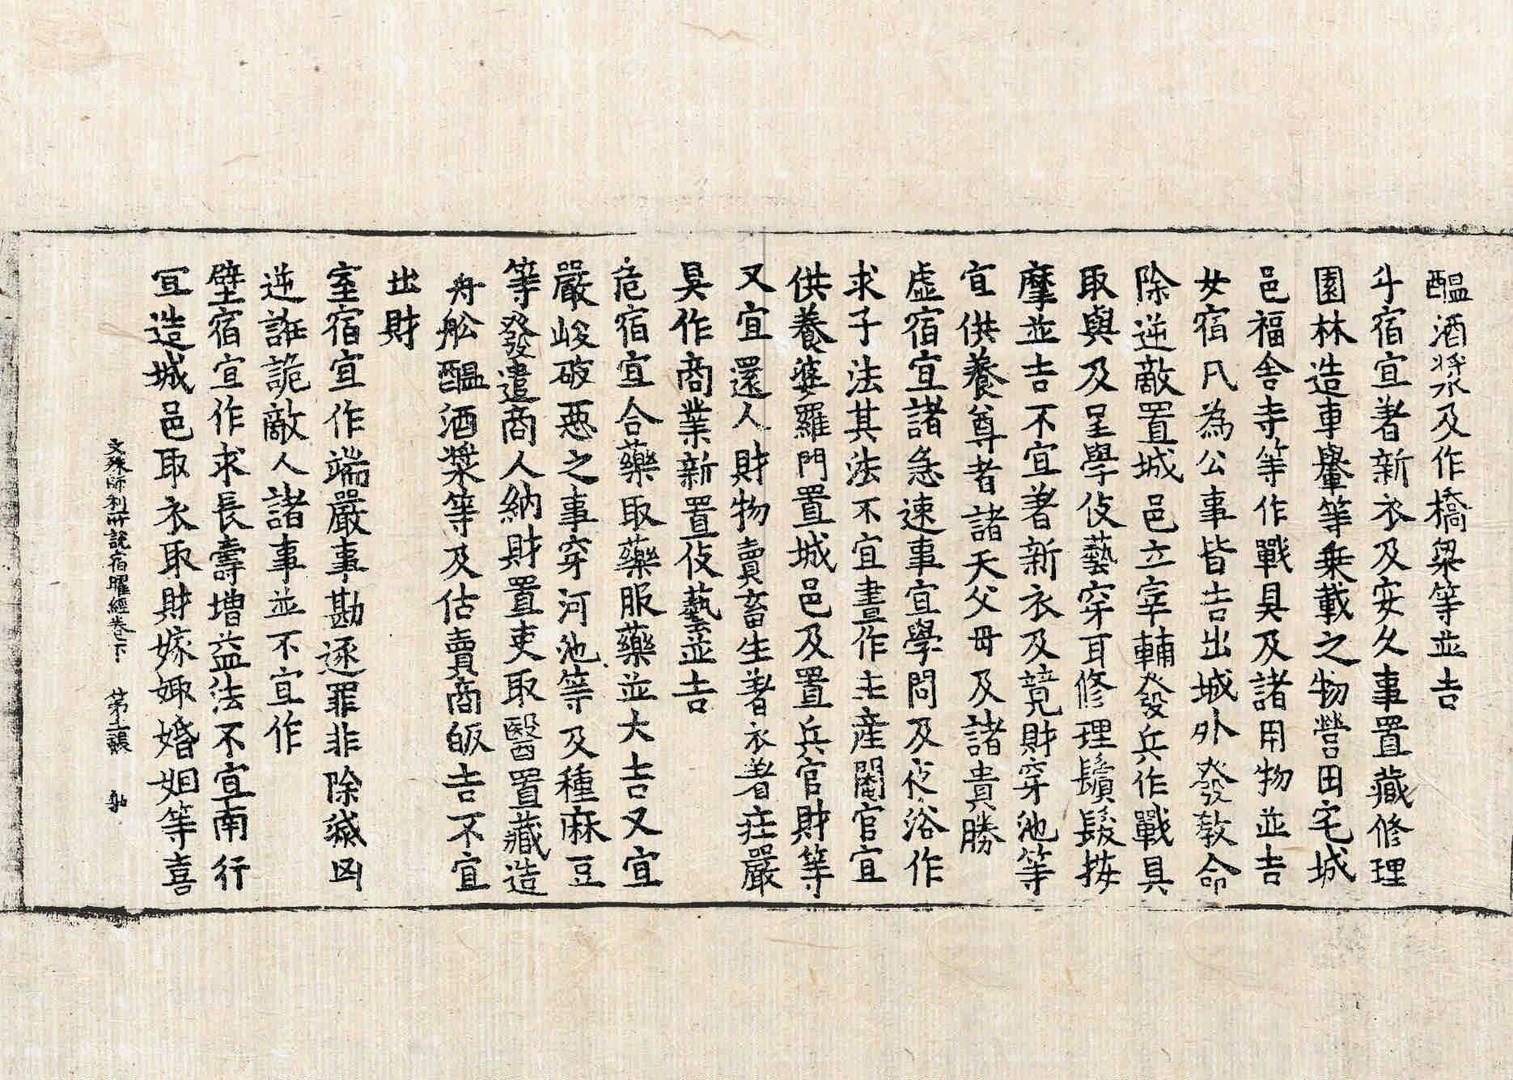 醖酒漿及作橋梁等並吉
斗宿宜著新衣及安久事置藏修理
園林造車轝等乗載之物營田宅城
邑福舍寺等作戰具及諸用物並吉
女宿凡為公事皆吉出城外發教命
除逆敵置城邑立宰輔發兵作戰具
取與及呈學伎藝穿耳修理鬚髮按
摩並吉不宜著新衣及競財穿池等
宜供養尊者諸天父母及諸貴勝
虛宿宜諸急速事宜學問及夜浴作
求子法其法不宜晝作主產閹官宜
供養婆羅門置城邑及置兵官財等
又宜還人財物賣畜生著衣著莊嚴
具作商業新置伎藝並吉
危宿宜合藥取藥服藥並大吉又宜
嚴峻破惡之事穿河池等及種麻豆
等發遣商人納財置吏取醫置藏造
舟舩醖酒漿等及估賣商販吉不宜
出財
室宿宜作端嚴事勘逐罪非除滅凶
逆誑詭敵人諸事並不宜作
壁宿宜作求長壽增益法不宜南行
宜造城邑取衣取財嫁娵婚姻等喜
文殊師利所說宿曜經卷下 第士張